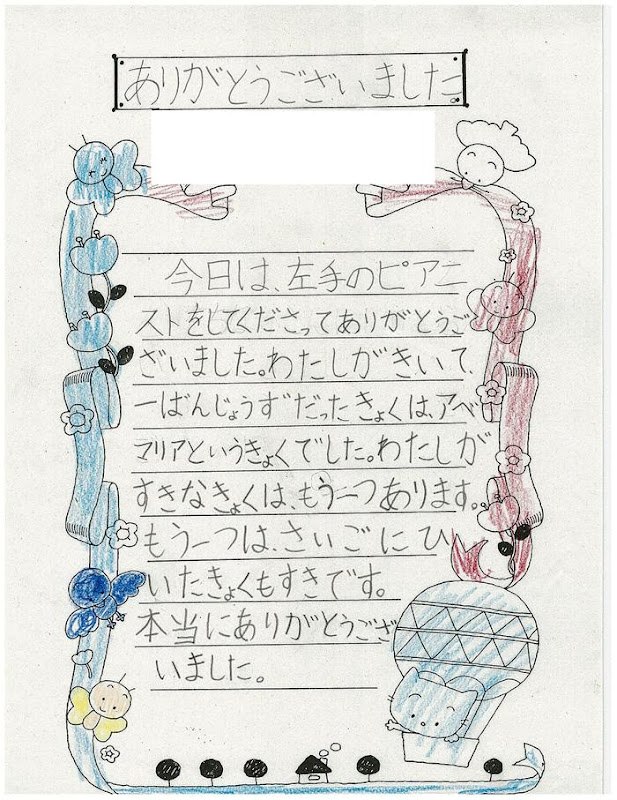 ありがとうございました
今日は、左手のピアニ
ストをしてくださってありがとうご
ざいました。わたしがきいて、
一ばんじょうず"だったきょくは、アベ
マリアというきょくでした。わたしが
すきなきょくは、もう一つあります。
もう一つは、さいごにひ
いたきょくもすきです。
本当にありがとうござ
いました。